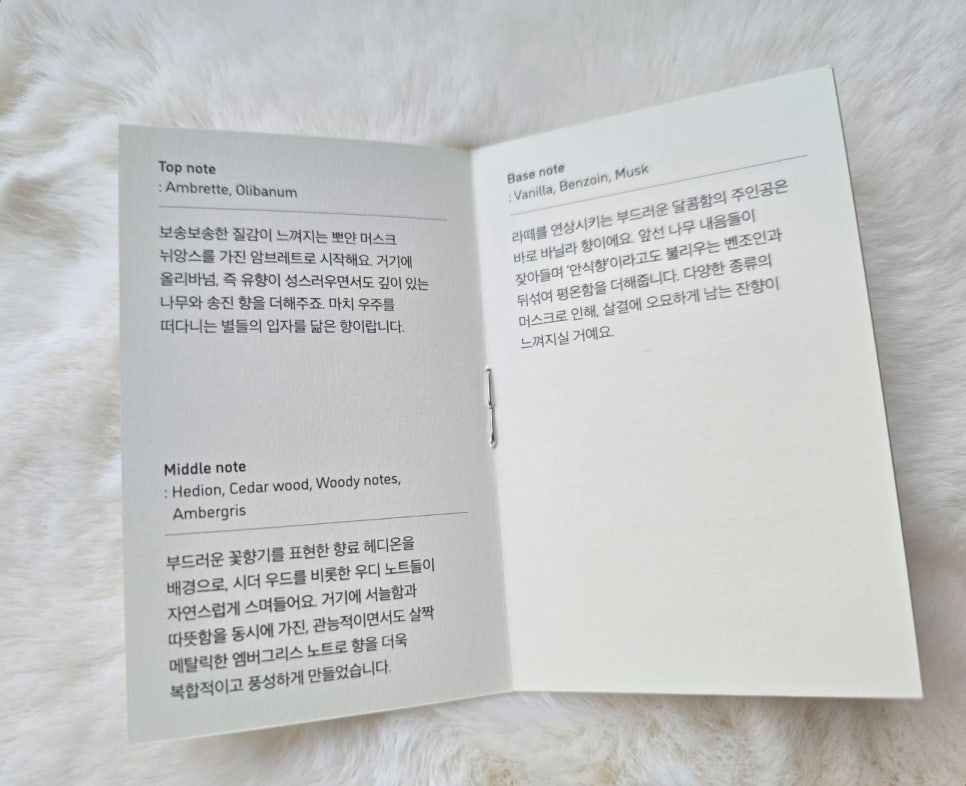 Top note
: Ambrette, Olibanum
보송보송한 질감이 느껴지는 뽀얀 머스크
뉘앙스를 가진 암브레트로 시작해요. 거기에
올리바넘, 즉 유향이 성스러우면서도 깊이 있는
나무와 송진 향을 더해주죠. 마치 우주를
떠다니는 별들의 입자를 닮은 향이랍니다.
Middle note
: Hedion, Cedar wood, Woody notes,
Ambergris
부드러운 꽃향기를 표현한 향료 헤디온을
배경으로, 시더 우드를 비롯한 우디 노트들이
자연스럽게 스며들어요. 거기에 서늘함과
따뜻함을 동시에 가진, 관능적이면서도 살짝
메탈릭한 엠버그리스 노트로 향을 더욱
복합적이고 풍성하게 만들었습니다.
Base note
: Vanilla, Benzoin, Musk
라떼를 연상시키는 부드러운 달콤함의 주인공은
바로 바닐라 향이에요. 앞선 나무 내음들이
잦아들며 '안식향'이라고도 불리우는 벤조인과
뒤섞여 평온함을 더해줍니다. 다양한 종류의
머스크로 인해, 살결에 오묘하게 남는 잔향이
느껴지실 거예요.